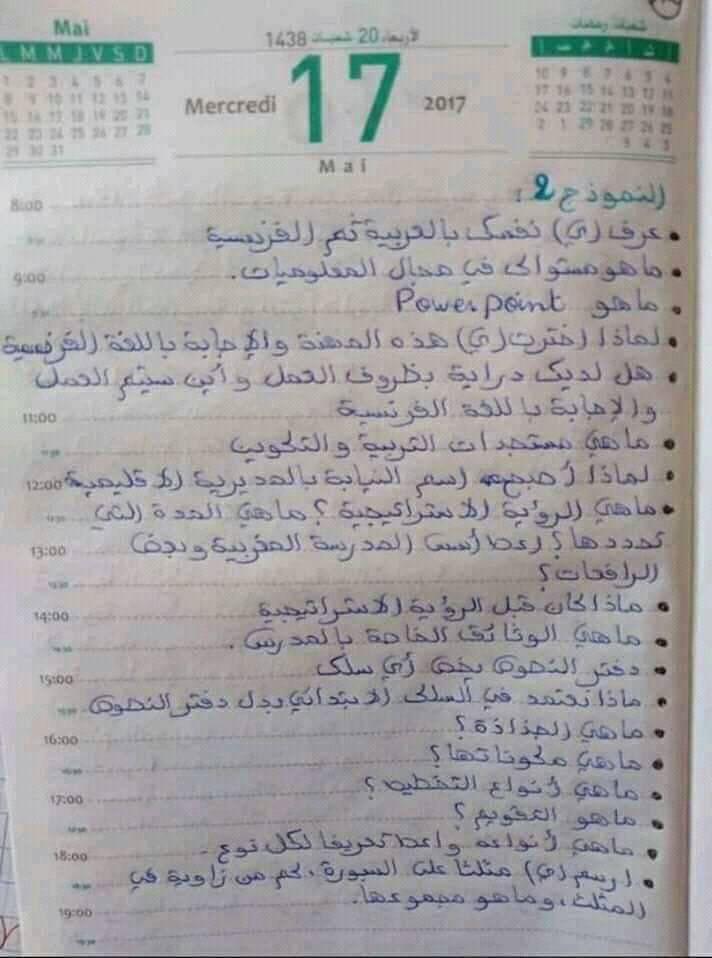 Mai
L M M J V S D
1 2 3 4 5 6 7
8 9 10 11 12 13 14
15 16 17 18 19 20 21
22 23 24 25 26 27 28
29 30 31
الأربعاء 20 شعبان 1438
Mercredi 17 2017
Mai
شعبان - رمضان
10 9 8 7 6 5 4
17 16 15 14 13 12 11
24 23 22 21 20 19 18
2 1 29 28 27 26 25
5 4 3
8:00 النموذج 2 :
• عرف (ي) نفسك بالعربية ثم الفرنسية
9:00 • ما هو مستواك في مجال المعلوميات.
• ما هو Power point
• لماذا اخترت (ي) هذه المهنة والإجابة باللغة الفرنسية
• هل لديك دراية بظروف العمل وأين سيتم العمل
11:00 والإجابة باللغة الفرنسية
• ما هي مستجدات التربية والتكوين
12:00 • لماذا أصبح اسم النيابة بالمديرية الاقليمية
• ماهي الرؤية الاستراتيجية ؟ ماهي المدة التي
13:00 تحددها ؟ اعط أسس المدرسة المغربية وبعض
الرافعات ؟
14:00 • ماذا كان قبل الرؤية الاستراتيجية
• ما هي الوثائق الخاصة بالمدرس.
15:00 • دفتر النصوص يخص أي سلك
• ماذا نعتمد في السلك الابتدائي بدل دفتر النصوص
16:00 • ما هي الجذاذة ؟
• ما هي مكوناتها ؟
17:00 • ما هي أنواع التخطيط ؟
• ما هو التقويم ؟
18:00 • ما هي أنواعه واعط تعريفا لكل نوع.
• ارسم (ي) مثلثا على السبورة، كم من زاوية في
19:00 المثلث، وما هو مجموعها.